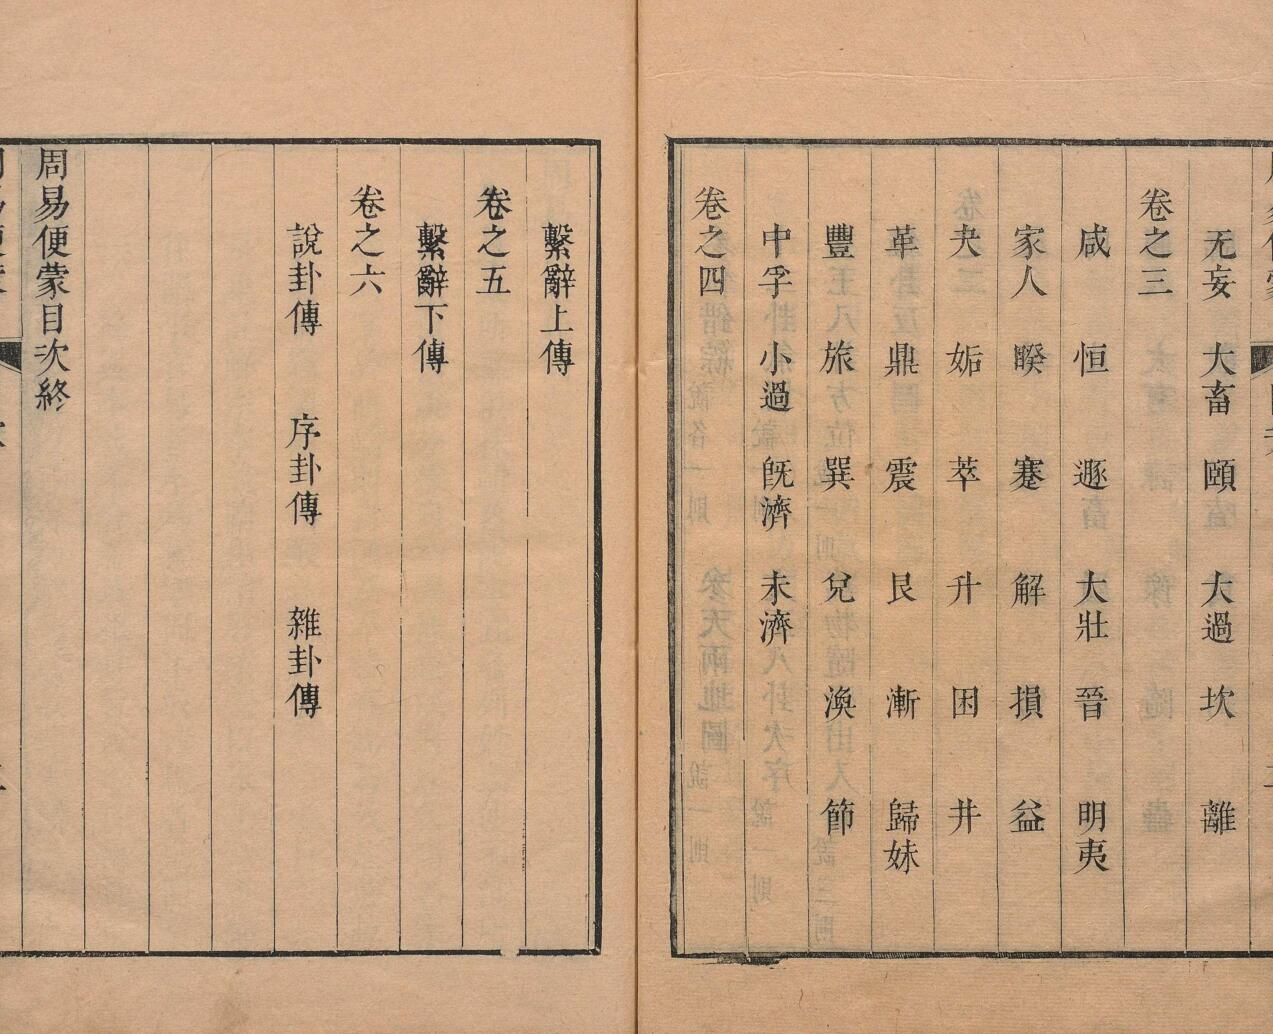 无妄 大畜 頤 大過 坎 離
卷之三
咸 恒 遯 大壯 晉 明夷
家人 睽 蹇 解 損 益
夬 姤 萃 升 困 井
革 鼎 震 艮 漸 歸妹
豐 旅 巽 兌 渙 節
中孚 小過 旣濟 未濟
卷之四
繫辭上傳
卷之五
繫辭下傳
卷之六
說卦傳 序卦傳 雜卦傳
周易便蒙目次終